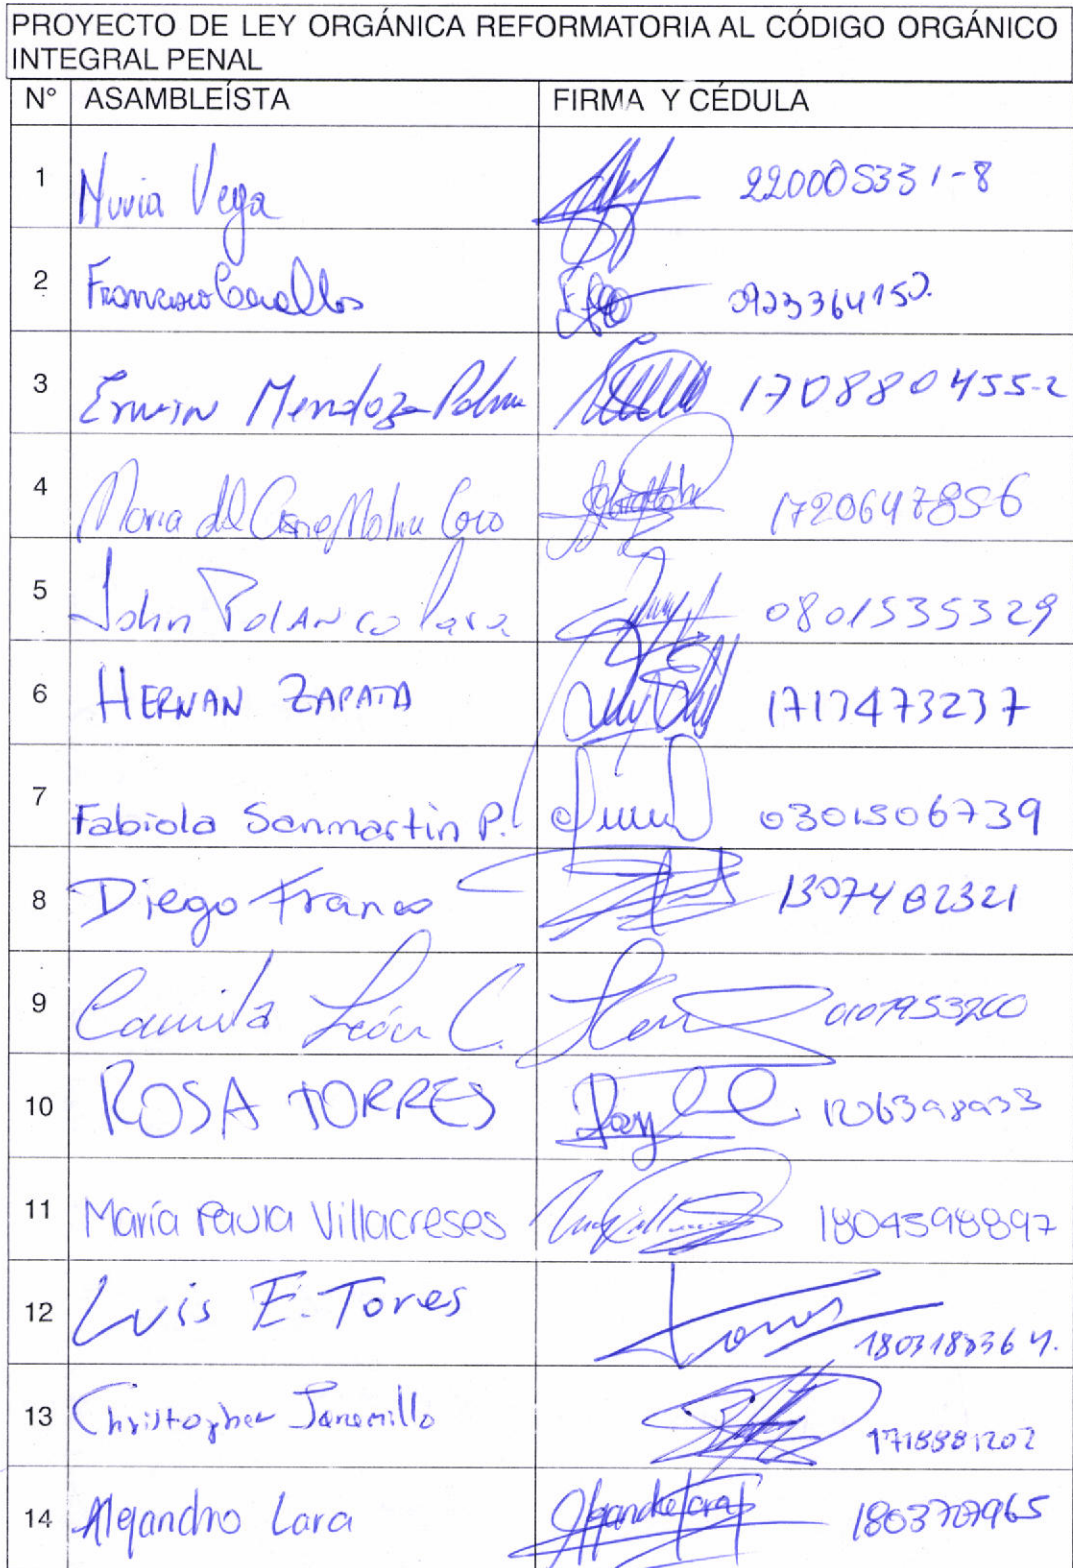 PROYECTO DE LEY ORGÁNICA REFORMATORIA AL CÓDIGO ORGÁNICO
INTEGRAL PENAL
N° ASAMBLEÍSTA FIRMA Y CÉDULA
1 Nuvia Vega 220005331-8
2 Francisco Cevallos
3 Erwin Mendoza Palma 170880455-2
4 Maria del Cisne Molina Coro 1720647856
5 John Polanco Lara 0801535329
6 HERNAN ZAPATA
7 Fabiola Sanmartin P. 0301506739
8 Diego Franco
9 Camila León C.
10 ROSA TORRES
11 María Paula Villacreses
12 Luis E. Torres
13 Christopher Jaramillo 1718881202
14 Alejandro Lara